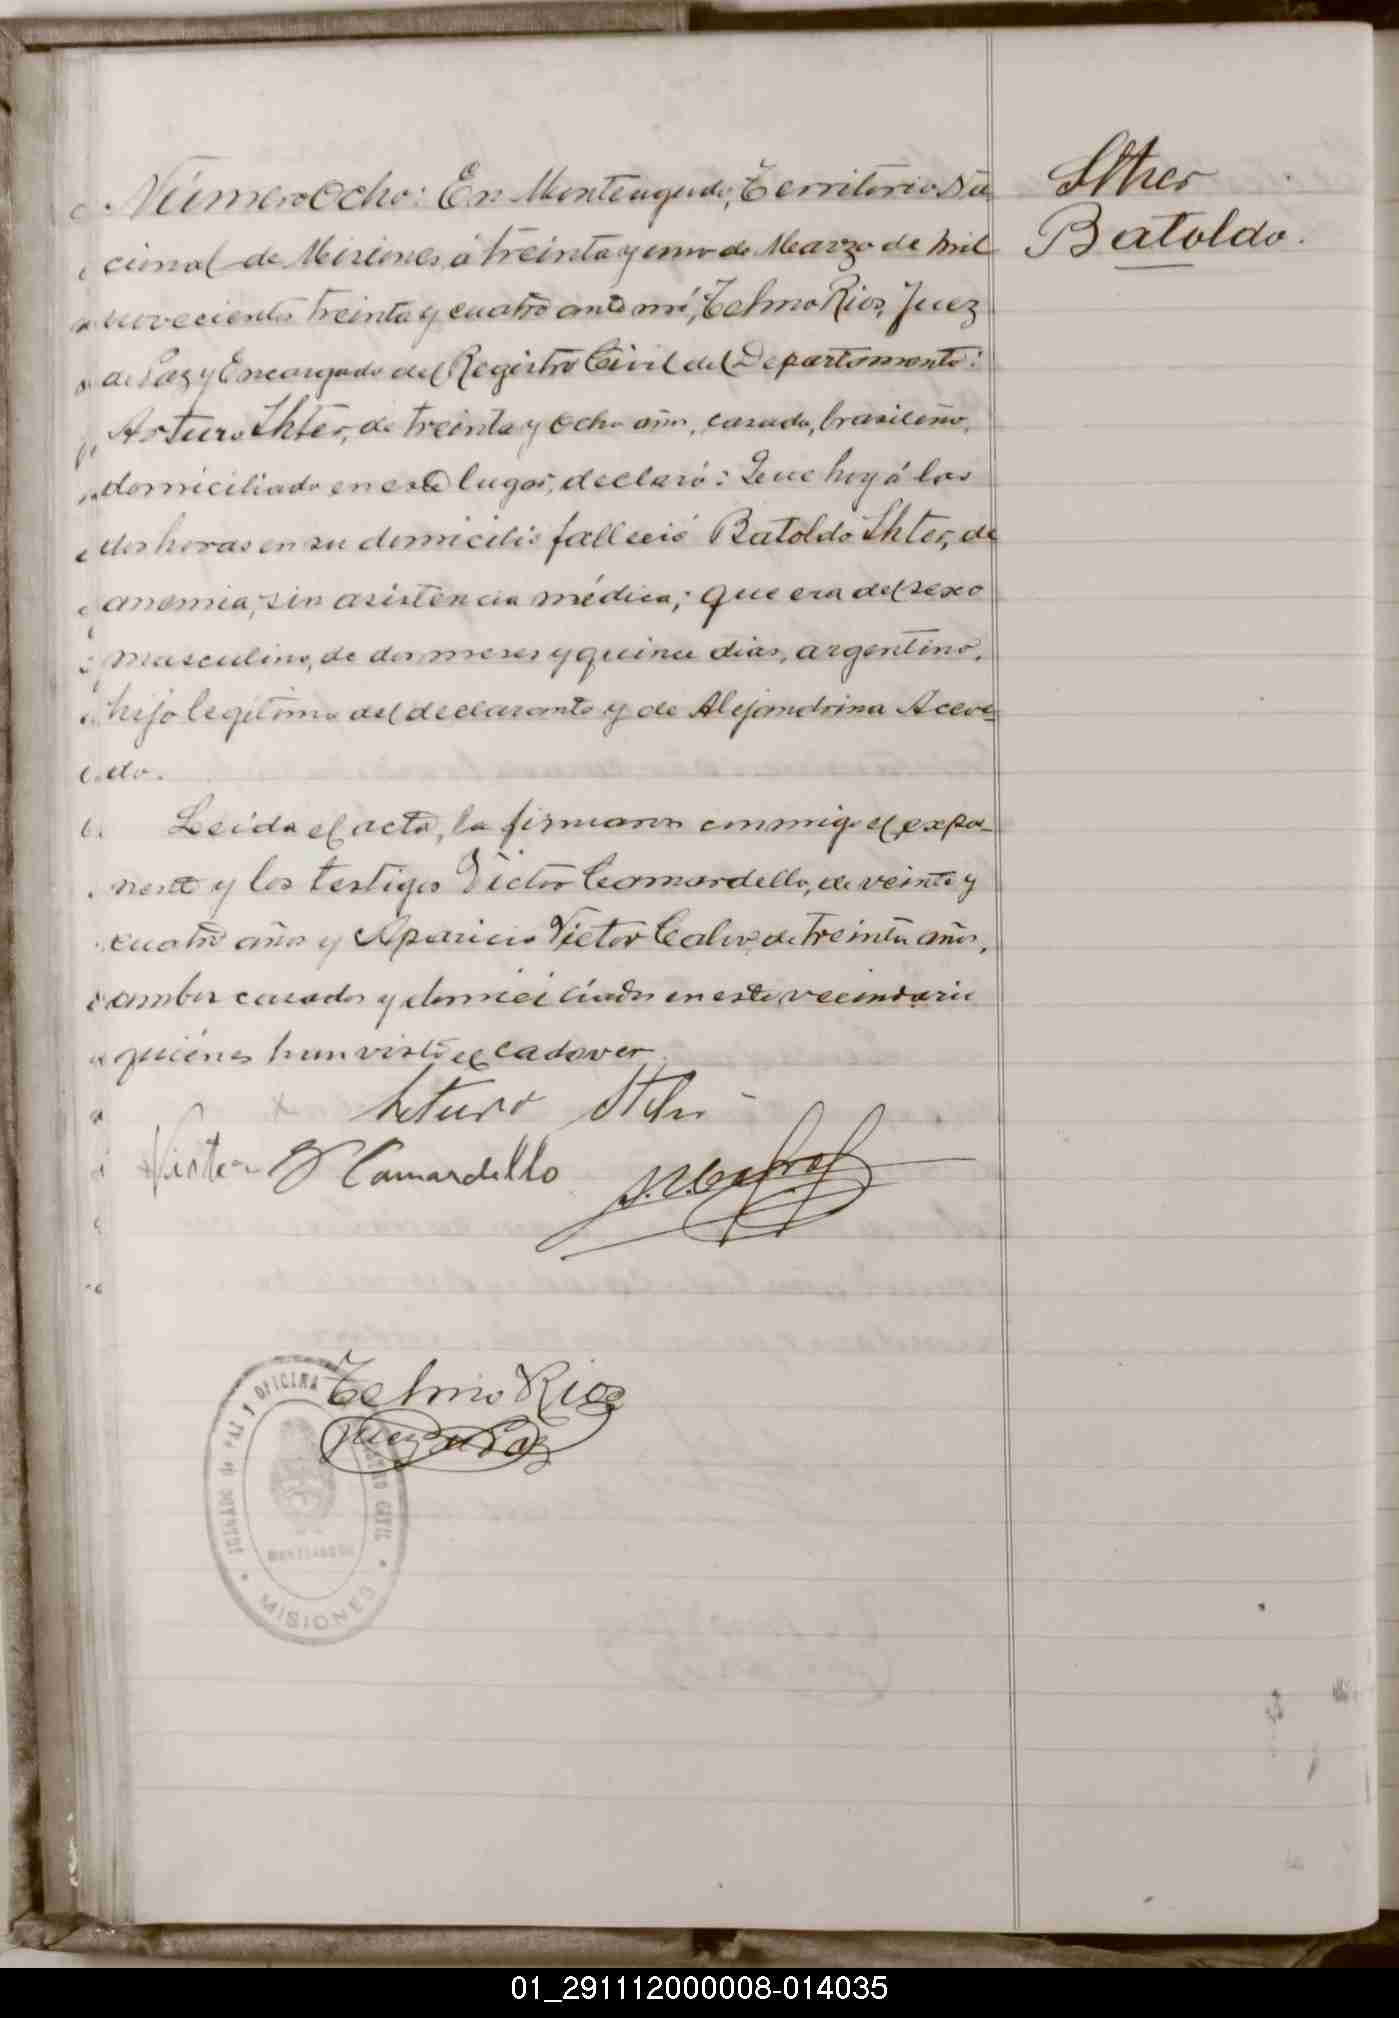 Sther
Batoldo.
Número Ocho: En Monteagudo, Territorio Na
cional de Misiones, á treinta y uno de Marzo de mil
novecientos treinta y cuatro ante mí, Telmo Rios, Juez
de Paz y Encargado del Registro Civil del Departamento:
Arturo Shter, de treinta y ocho años, casado, brasileño,
domiciliado en este lugar, declaró: Que hoy á las
dos horas en su domicilio falleció Batoldo Shter, de
anemia, sin asistencia médica; que era del sexo
masculino, de dos meses y quince dias, argentino,
hijo legítimo del declarante y de Alejandrina Aceve=
do.
Leida el acta, la firmaron conmigo el expo-
nente y los testigos Victor Camardello, de veinte y
cuatro años y Aparicio Victor Calvo, de treinta años,
ambos casados y domiciliados en este vecindario
quiénes han visto el cadaver.
Arturo
Victor Camardello
Telmo Rios
Juez de Paz
JUZGADO de PAZ y OFICINA
REGISTRO CIVIL
MONTEAGUDO
MISIONES
01_291112000008-014035